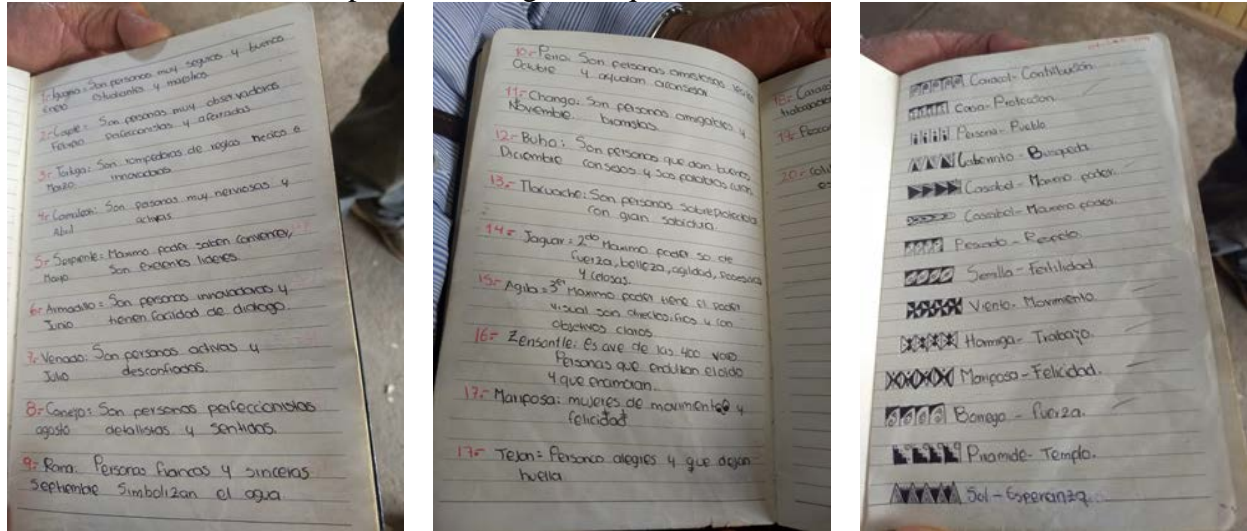 1.- Iguana: Son personas muy seguras y buenos
Enero estudiantes y maestros.
2.- Coyote: Son personas muy observadoras
Febrero perfeccionistas y aferradas
3.- Tortuga: Son rompedoras de reglas necios e
Marzo innovadores
4.- Camaleon: Son personas muy nerviosas y
Abril activas
5.- Serpiente: Maximo poder saben convencer,
Mayo Son exelentes lideres.
6.- Armadillo: Son personas innovadoras y
Junio tienen facilidad de dialogo.
7.- Venado: Son personas activas y
Julio desconfiadas.
8.- Conejo: Son personas perfeccionistas
agosto detallistas y sentidos.
9.- Rana: Personas francas y sinceras
Septiembre Simbolizan el agua
10.- Perro: Son personas amistosas
Octubre y ayudan aconsejar
11.- Chango: Son personas amigables y
Noviembre. bromistas.
12.- Buho: Son personas que dan buenos
Diciembre consejos y sus palabras
13.- Tlacuache: Son personas sobreprotectoras
con gran sabiduria.
14.- Jaguar: 2do Maximo poder so de
fuerza, belleza, agilidad,
y celosas.
15.- Agila: 3er Maximo poder tiene el poder
visual son y con
objetivos claros
16.- Zensontle: Es ave de las 400
Personas que endulzan el oido
y que enamoran.
17.- Mariposa: mujeres de movimiento y
felicidad
17.- Tejon: Personas alegres y que dejan
huella
18.-
19.-
20.-
Caracol- Contribución.
Casa- Proteccion
Persona- Pueblo
Laberinto - Busqueda
Cascabel- Maximo poder.
Cascabel- Maximo poder.
Pescado - Respeto.
Semilla - Fertilidad
Viento- Movimiento.
Hormiga- Trabajo.
Mariposa-Felicidad.
Borrego - fuerza.
Piramide- Templo.
Sol-Esperanza